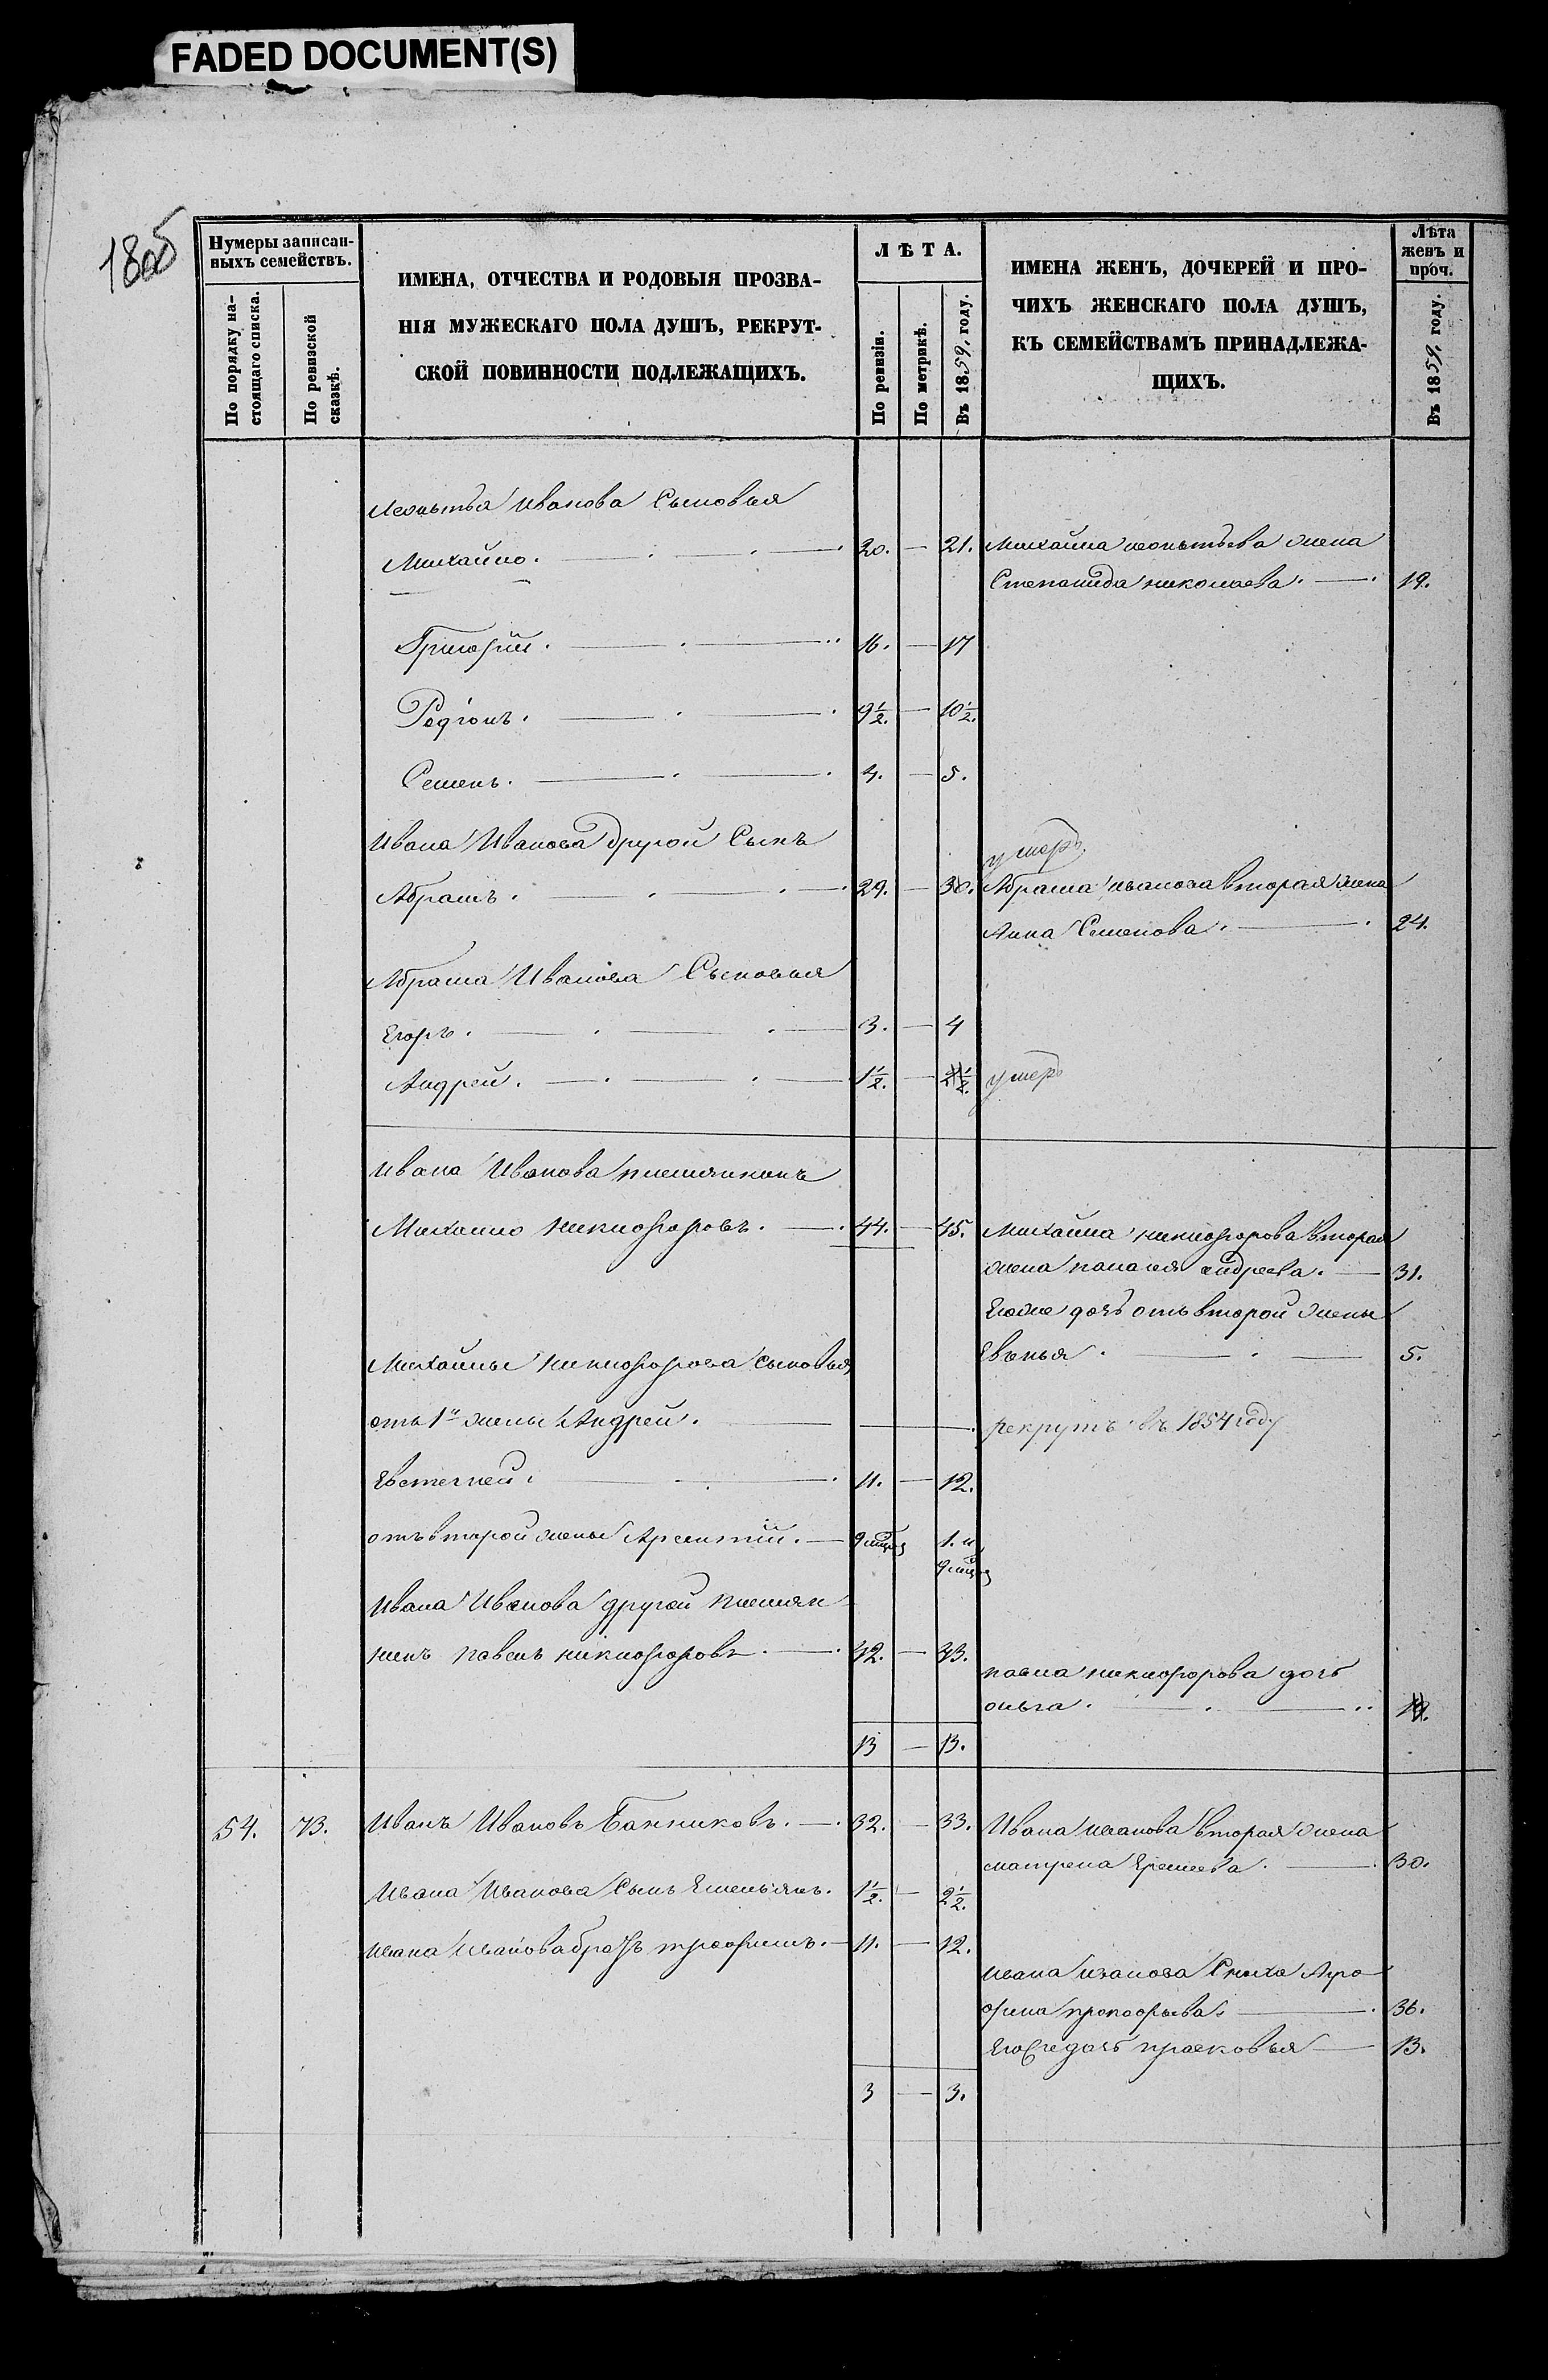 FADED DOCUMENT(S)
Нумеры записан-
ныхъ семействъ.
По порядку на-
стоящаго списка.
По ревизской
сказкѣ.
ИМЕНА, ОТЧЕСТВА И РОДОВЫЯ ПРОЗВА-
НІЯ МУЖЕСКАГО ПОЛА ДУШЪ, РЕКРУТ-
СКОЙ ПОВИННОСТИ ПОДЛЕЖАЩИХЪ.
ЛѢТА.
По ревизіи.
По метрикѣ.
Въ 1859. году.
ИМЕНА ЖЕНЪ, ДОЧЕРЕЙ И ПРО-
ЧИХЪ ЖЕНСКАГО ПОЛА ДУШЪ,
КЪ СЕМЕЙСТВАМЪ ПРИНАДЛЕЖА-
ЩИХЪ.
Лѣта
женъ и
проч.
Въ 1859. году.
Леонтья Иванова Сыновья
Михайло. 20. — 21. Михайла леонтьева жена
Степанида николаева. 19.
Григорій. 16. — 17
Родіонъ. 9½. — 10½.
Семенъ. 4. — 5.
Ивана Иванова другой Сынъ
умеръ.
Абрамъ. 29. — 30. Абрама иванова вторая жена
Анна Семенова. 24.
Абрама Иванова Сыновья
Егоръ. 3. — 4
Андрей. 1½. — умеръ
Ивана Иванова племянникъ
Михайло никифоровъ. 44. — 45. Михайла никифорова вторая
жена палагея андреева. 31.
Егоже дочь отъ второй жены
5.
Михайлы никифорова сыновья
отъ 1й жены Андрей. рекрутъ въ 1854 году
Евстегней. 11. — 12.
отъ второй жены Арсентій. — 9 мцов 1. и
9 мцов
Ивана Иванова другой племян
никъ павелъ никифоровъ. 42. — 43.
павла никифорова дочь
ольга.
13 — 13.
54. 73. Иванъ Ивановъ Банниковъ. 32. — 33. Ивана иванова вторая жена
матрена Еремеева. 30.
Ивана Иванова Сынъ Емельянъ. 1½. — 2½.
Ивана Иванова братъ трофимъ. 11. — 12.
Ивана иванова Сноха Агро
фина прокофьева. 36.
дочь прасковья 13.
3 — 3.